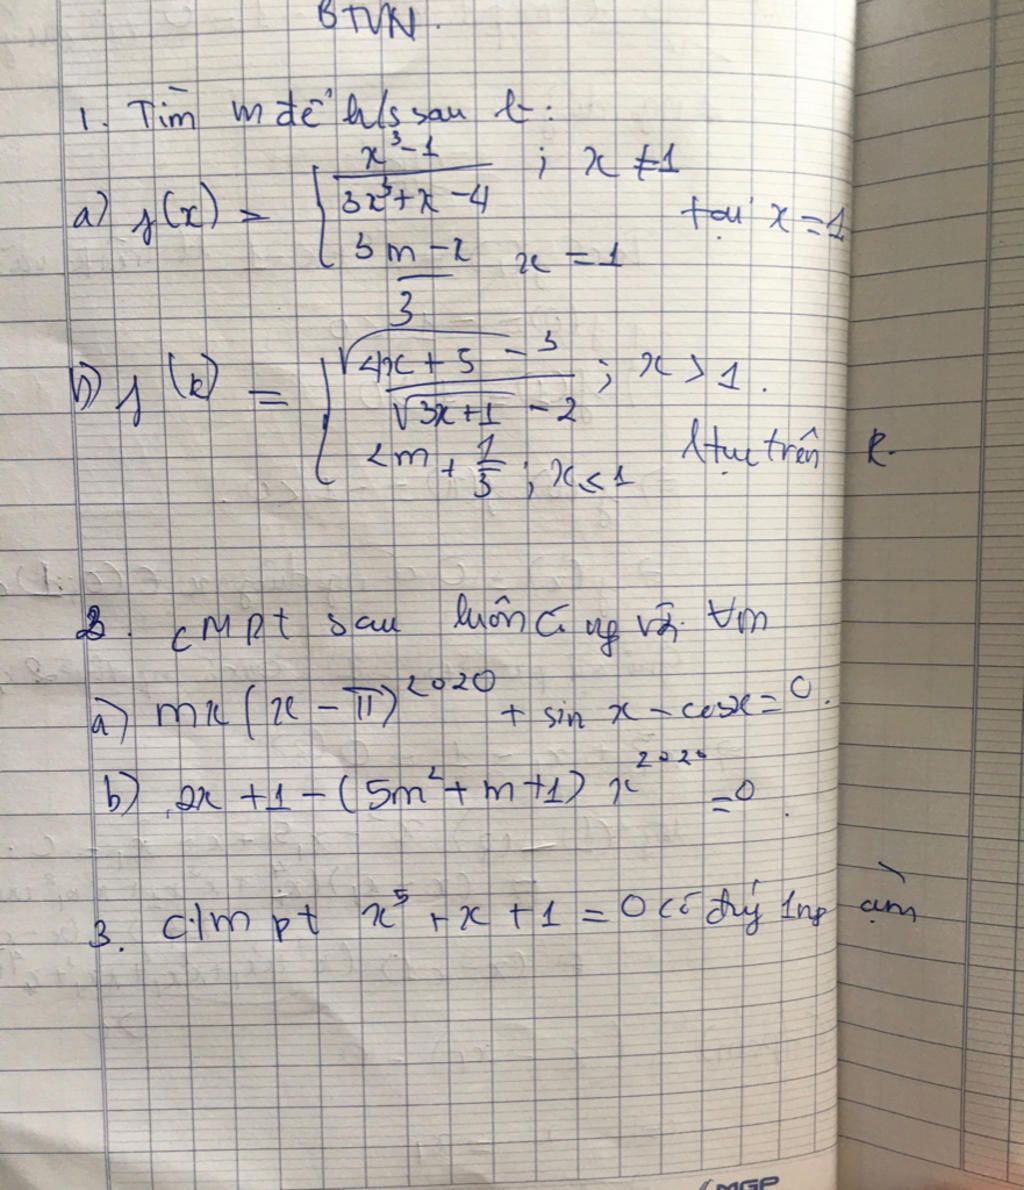 BTVN.
1. Tìm m để h/s sau lt:
a) f(x) = { x³-1 / 3x³+x-4 ; x ≠ 1
5m-2 / 3 x = 1 tại x = 1
b) f(x) = { √4x+5 - 3 / √3x+1 - 2 ; x > 1.
2m + 1/3 ; x ≤ 1 ltục trên R.
2. CM pt sau luôn có ng với ∀m
a) mx(x - π)²⁰²⁰ + sin x - cosx = 0.
b) 2x + 1 - (5m² + m + 1) x²⁰²⁰ = 0.
3. c/m pt x⁵ + x + 1 = 0 có 1ng âm
MGP